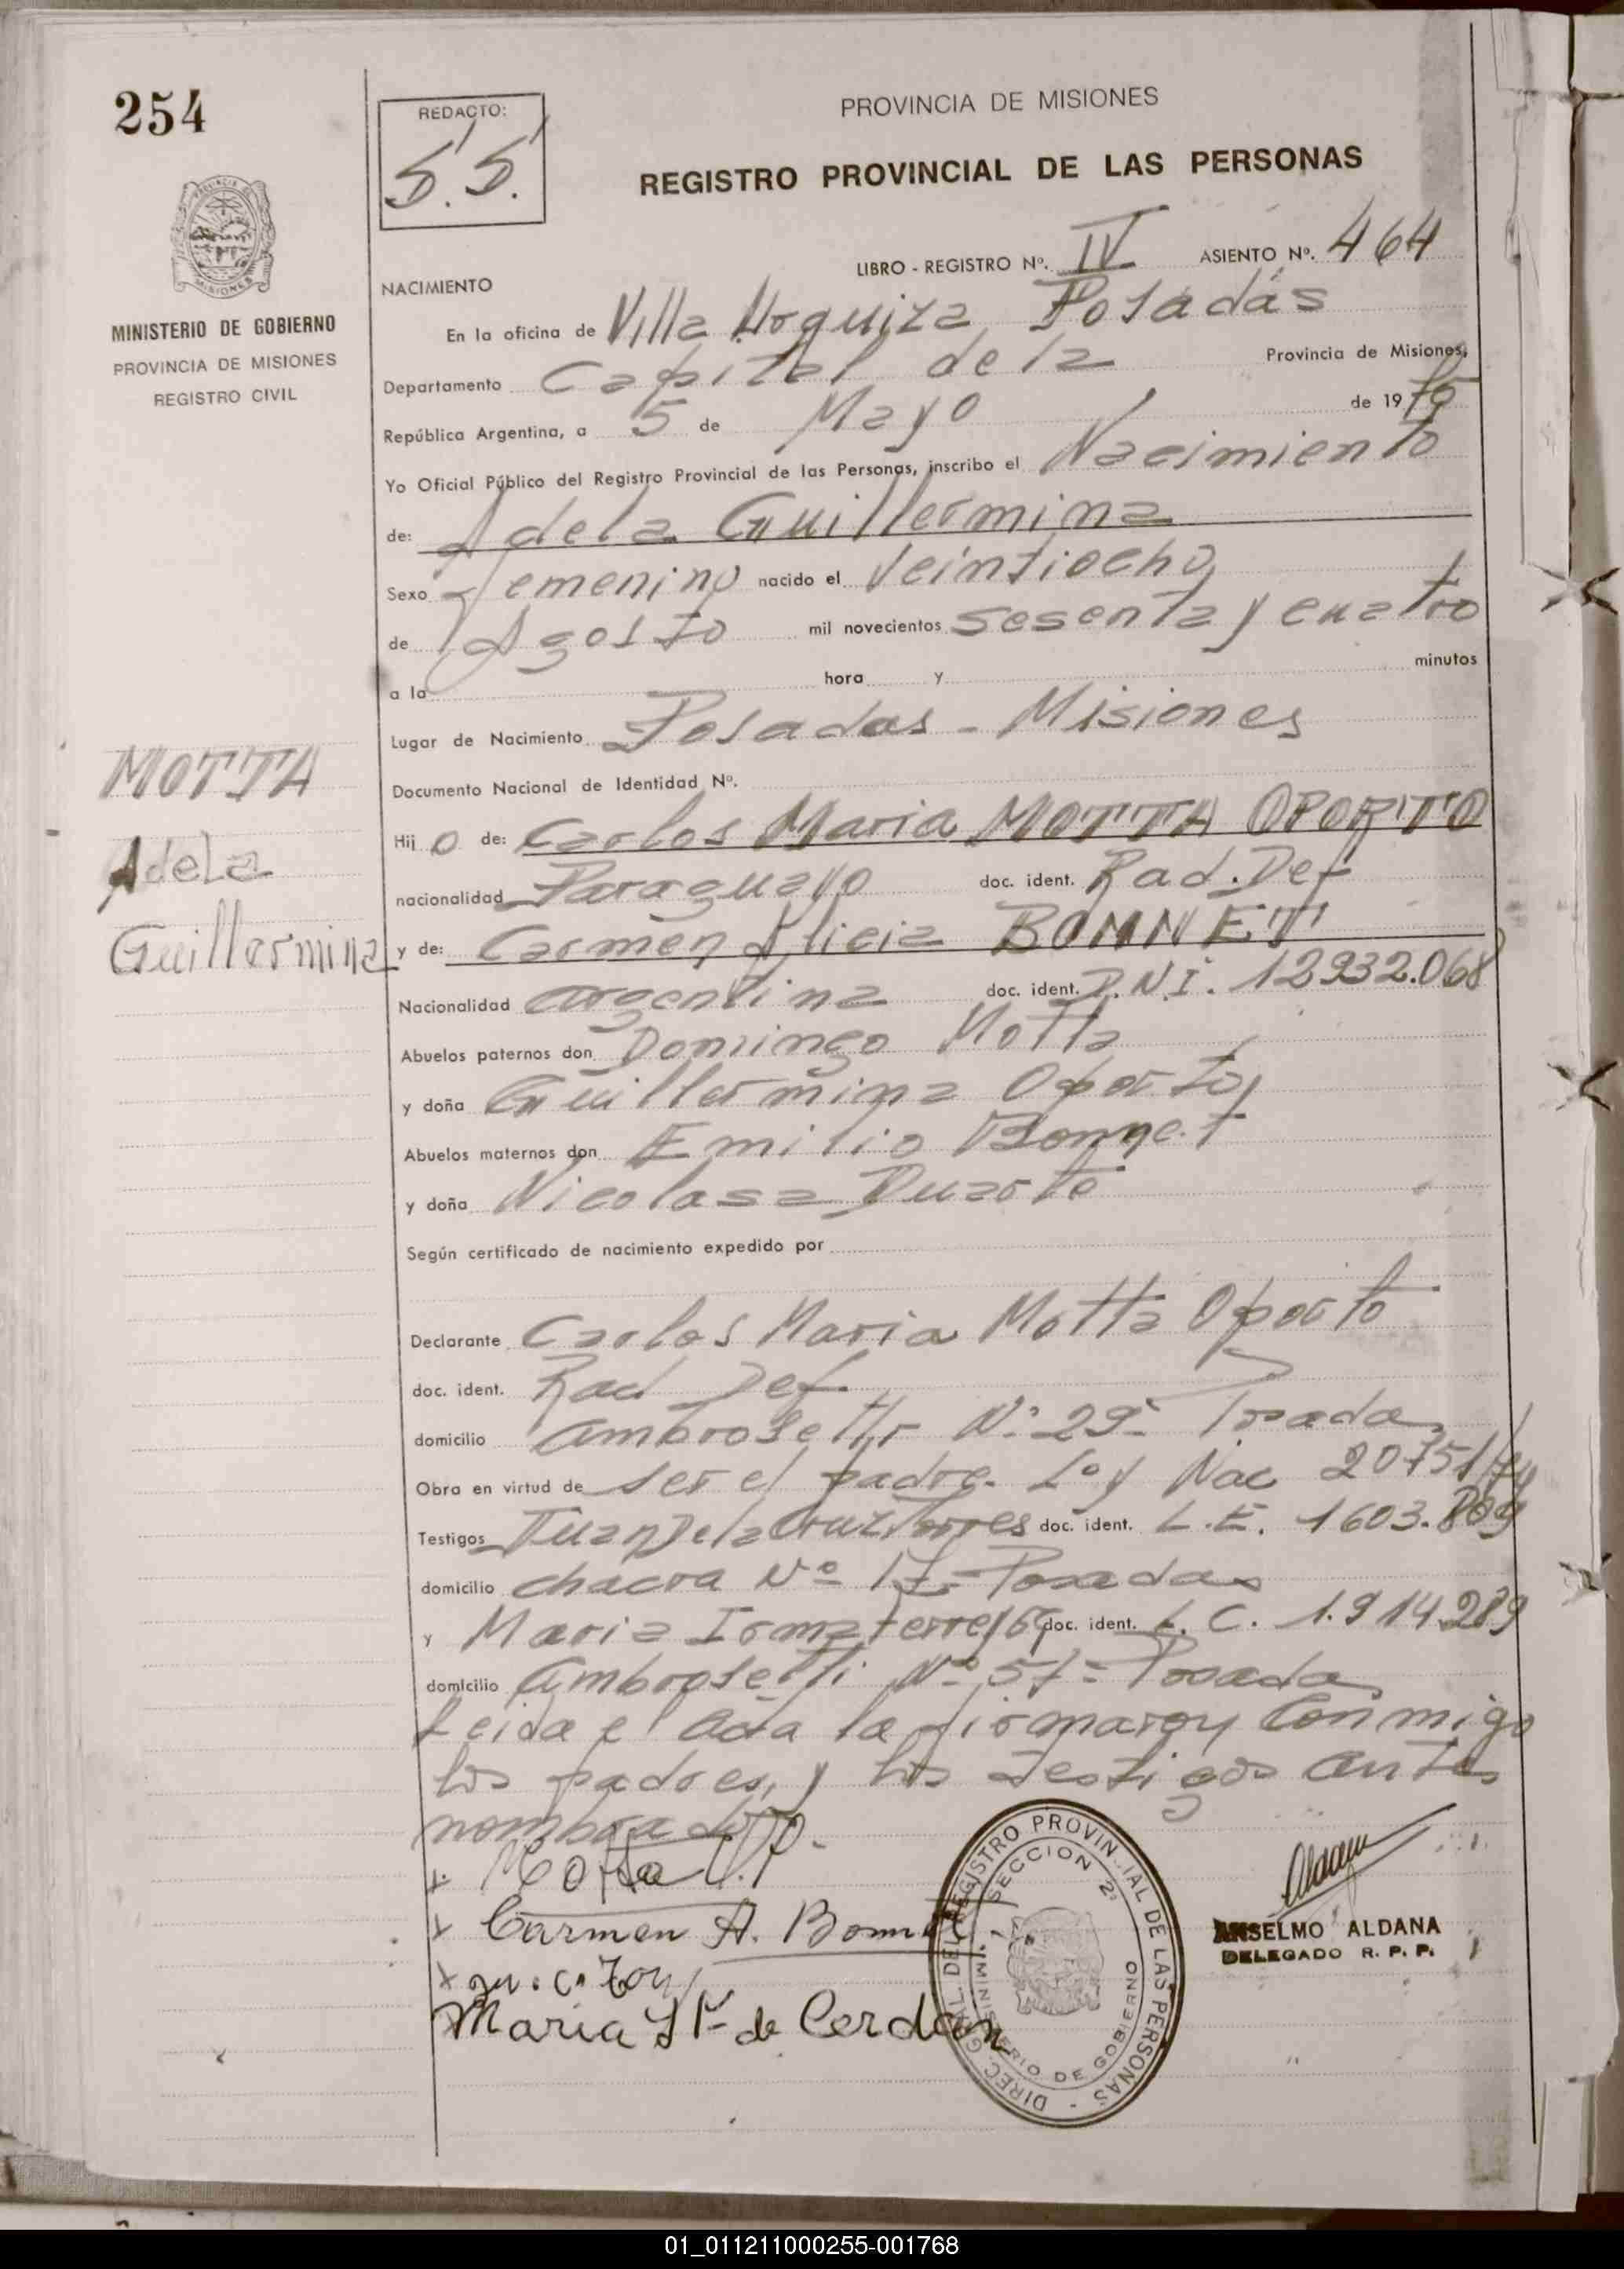 254
REDACTO:
S. S.
PROVINCIA DE MISIONES
REGISTRO PROVINCIAL DE LAS PERSONAS
LIBRO - REGISTRO Nº. IV ASIENTO Nº. 464
NACIMIENTO
MINISTERIO DE GOBIERNO
PROVINCIA DE MISIONES
REGISTRO CIVIL
En la oficina de Villa Urquiza Posadas
Departamento Capital de la Provincia de Misiones,
República Argentina, a 5 de Mayo de 19
Yo Oficial Público del Registro Provincial de las Personas, inscribo el Nacimiento
de: Adela Guillermina
Sexo Femenino nacido el Veintiocho
de Agosto mil novecientos sesenta y cuatro
a la hora y minutos
Lugar de Nacimiento Posadas - Misiones
Documento Nacional de Identidad Nº.
MOTTA
Adela
Guillermina
Hij o de: Carlos Maria MOTTA OPORTO
nacionalidad Paraguayo doc. ident. Rad. Def
y de: Carmen Alicia BONNET
Nacionalidad argentina doc. ident. D.N.I. 12932.068
Abuelos paternos don Domingo Motta
y doña Guillermina Oporto
Abuelos maternos don Emilio Bonnet
y doña Nicolasa Duarte
Según certificado de nacimiento expedido por
Declarante Carlos Maria Motta Oporto
doc. ident. Rad Def
domicilio Ambrosetti Nº 29- Posadas
Obra en virtud de ser el padre. Ley Nac 20751/
Testigos Juan De la Cruz Torres doc. ident. L.E. 1603.809
domicilio chacra Nº 17- Posadas
y Maria Irma doc. ident. L. C. 1.914.289
domicilio Ambrosetti Nº 57= Posadas
Leida el Acta la firmaron Conmigo
los padres, y los testigos antes
nombrados
x Motta
x Carmen A. Bonnet
x
Maria de Cerdan
DIREC. GRAL. DEL REGISTRO PROVINCIAL DE LAS PERSONAS -
SECCION 2ª
MINISTERIO DE GOBIERNO
ANSELMO ALDANA
DELEGADO R. P. P.
01_011211000255-001768